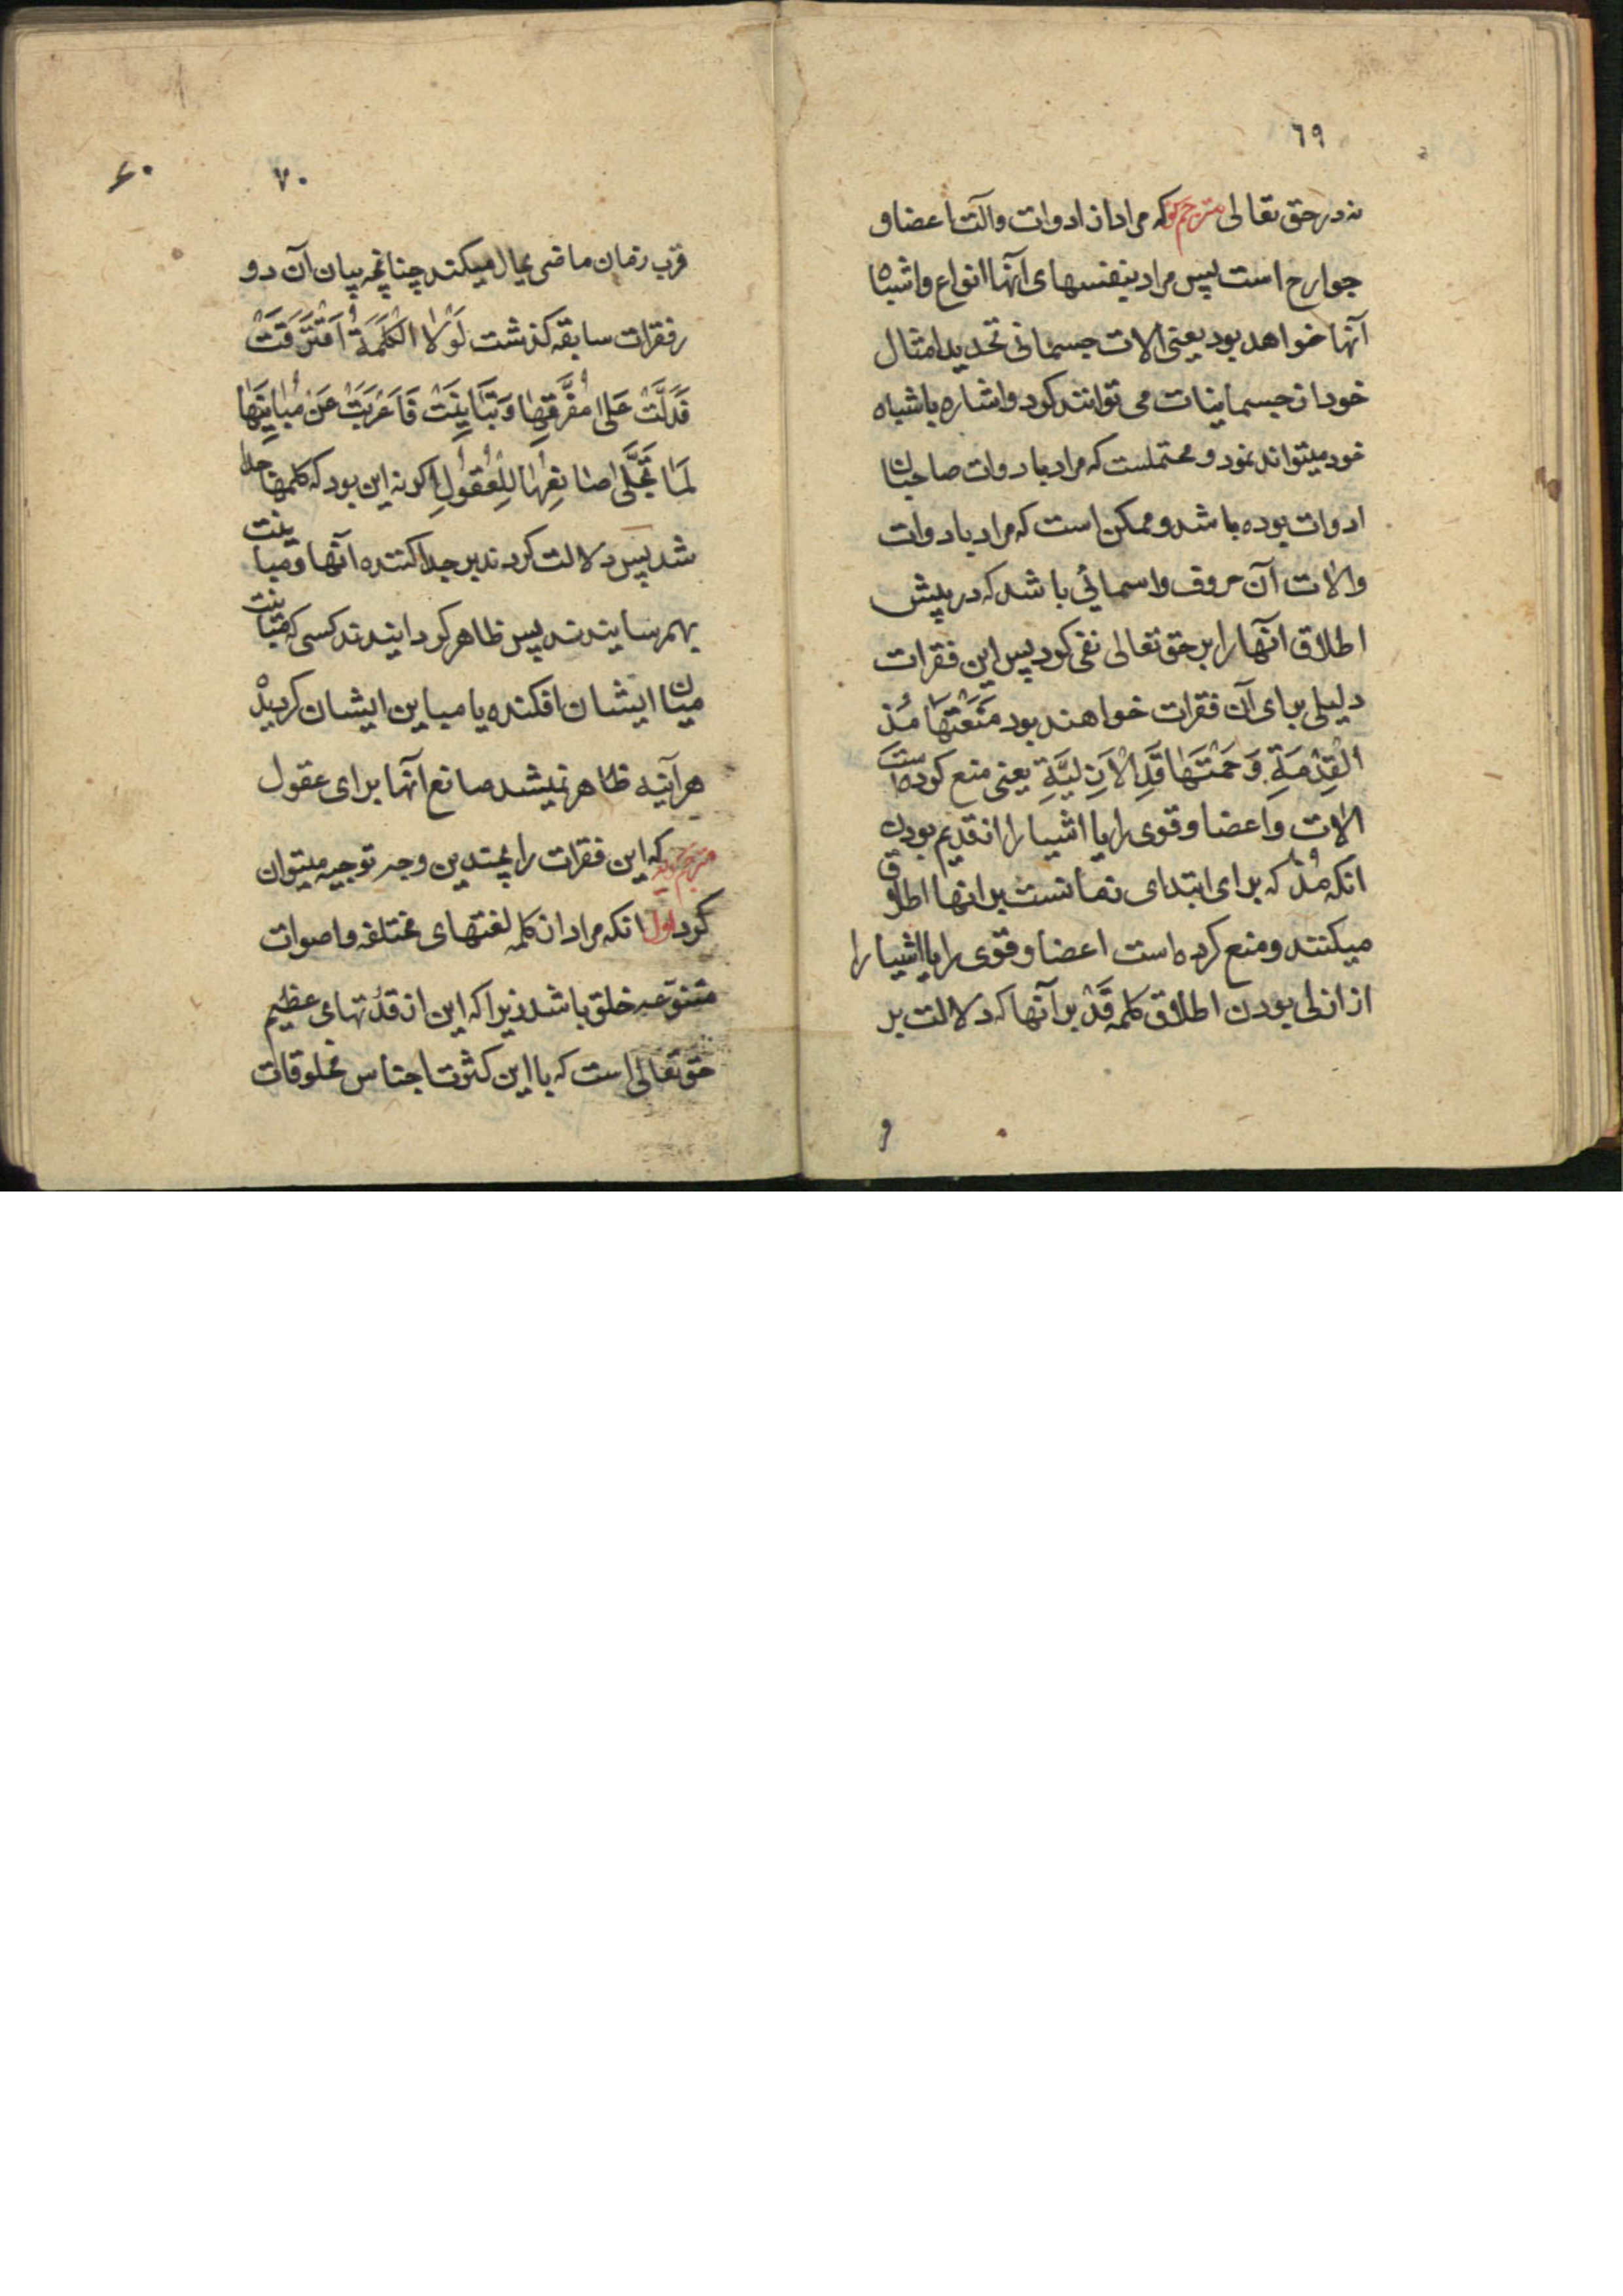 ٦٩
نه در حق تعالی مترجم کو که مراد از ادوات و آلت اعضا و
جوارح است پس مراد بنفسهای آنها انواع و اشباه
آنها خواهد بود یعنی الات جسمانی تحدید امثال
خود از جسمانیات می توانند کرد و اشاره باشباه
خود میتواند نمود و محتملست که مراد بادوات صاحبان
ادوات بوده باشد و ممکن است که مراد بادوات
والات آن حروف و اسمائی باشد که در پیش
اطلاق آنها را بر حق تعالی نفی کرد پس این فقرات
دلیلی برای آن فقرات خواهند بود مَنَعَتْهَا مُنْذُ
الْقِدْمَةِ وَ حَمَتْهَا قَدِ الْاَزَلِیَّةِ یعنی منع کرده است
الات و اعضا و قوی را یا اشیا را از قدیم بودن
انکه مُنْذُ که برای ابتدای زمانست بر انها اطلاق
میکنند و منع کرده است اعضا و قوی را یا اشیا را
از ازلی بودن اطلاق کلمه قَدْ بر آنها که دلالت بر
و
٧٠
۶۰
قرب زمان ماضی بحال میکند چنانچه بیان آن دو
رفقرات سابقه کذشت لَوْلَا الْکَلِمَةُ اَفْتَرَقَتْ
فَدَلَّتْ عَلی مُفَرِّقِهَا وَ تَبَایَنَتْ فَاَعْرَبَتْ عَنْ مُبَایِنِهَا
لَمَا تَجَلّی صَانِعُهَا لِلْعُقُولِ اکر نه این بود که کلمها جدا
شد پس دلالت کردند بر جدا کننده آنها و مباینت
بهم رسانیدند پس ظاهر کردانیدند کسی که مباینت
میان ایشان افکنده یا مباین ایشان کردیده
هر آینه ظاهر نمیشد صانع آنها برای عقول
مترجم کوید که این فقرات را بچندین وجه توجیه میتوان
کرد اول انکه مراد از کلمه لغتهای مختلفه و اصوات
متنوعه خلق باشد زیرا که این از قدرتهای عظیم
حق تعالی است که با این کثرت اجناس مخلوقات